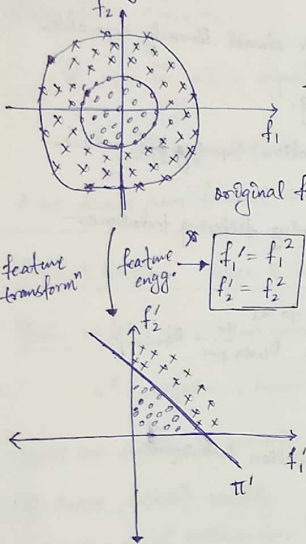 f₂
f₁
original f
feature transformⁿ
feature engg.
f₁' = f₁²
f₂' = f₂²
f₂'
f₁'
π'